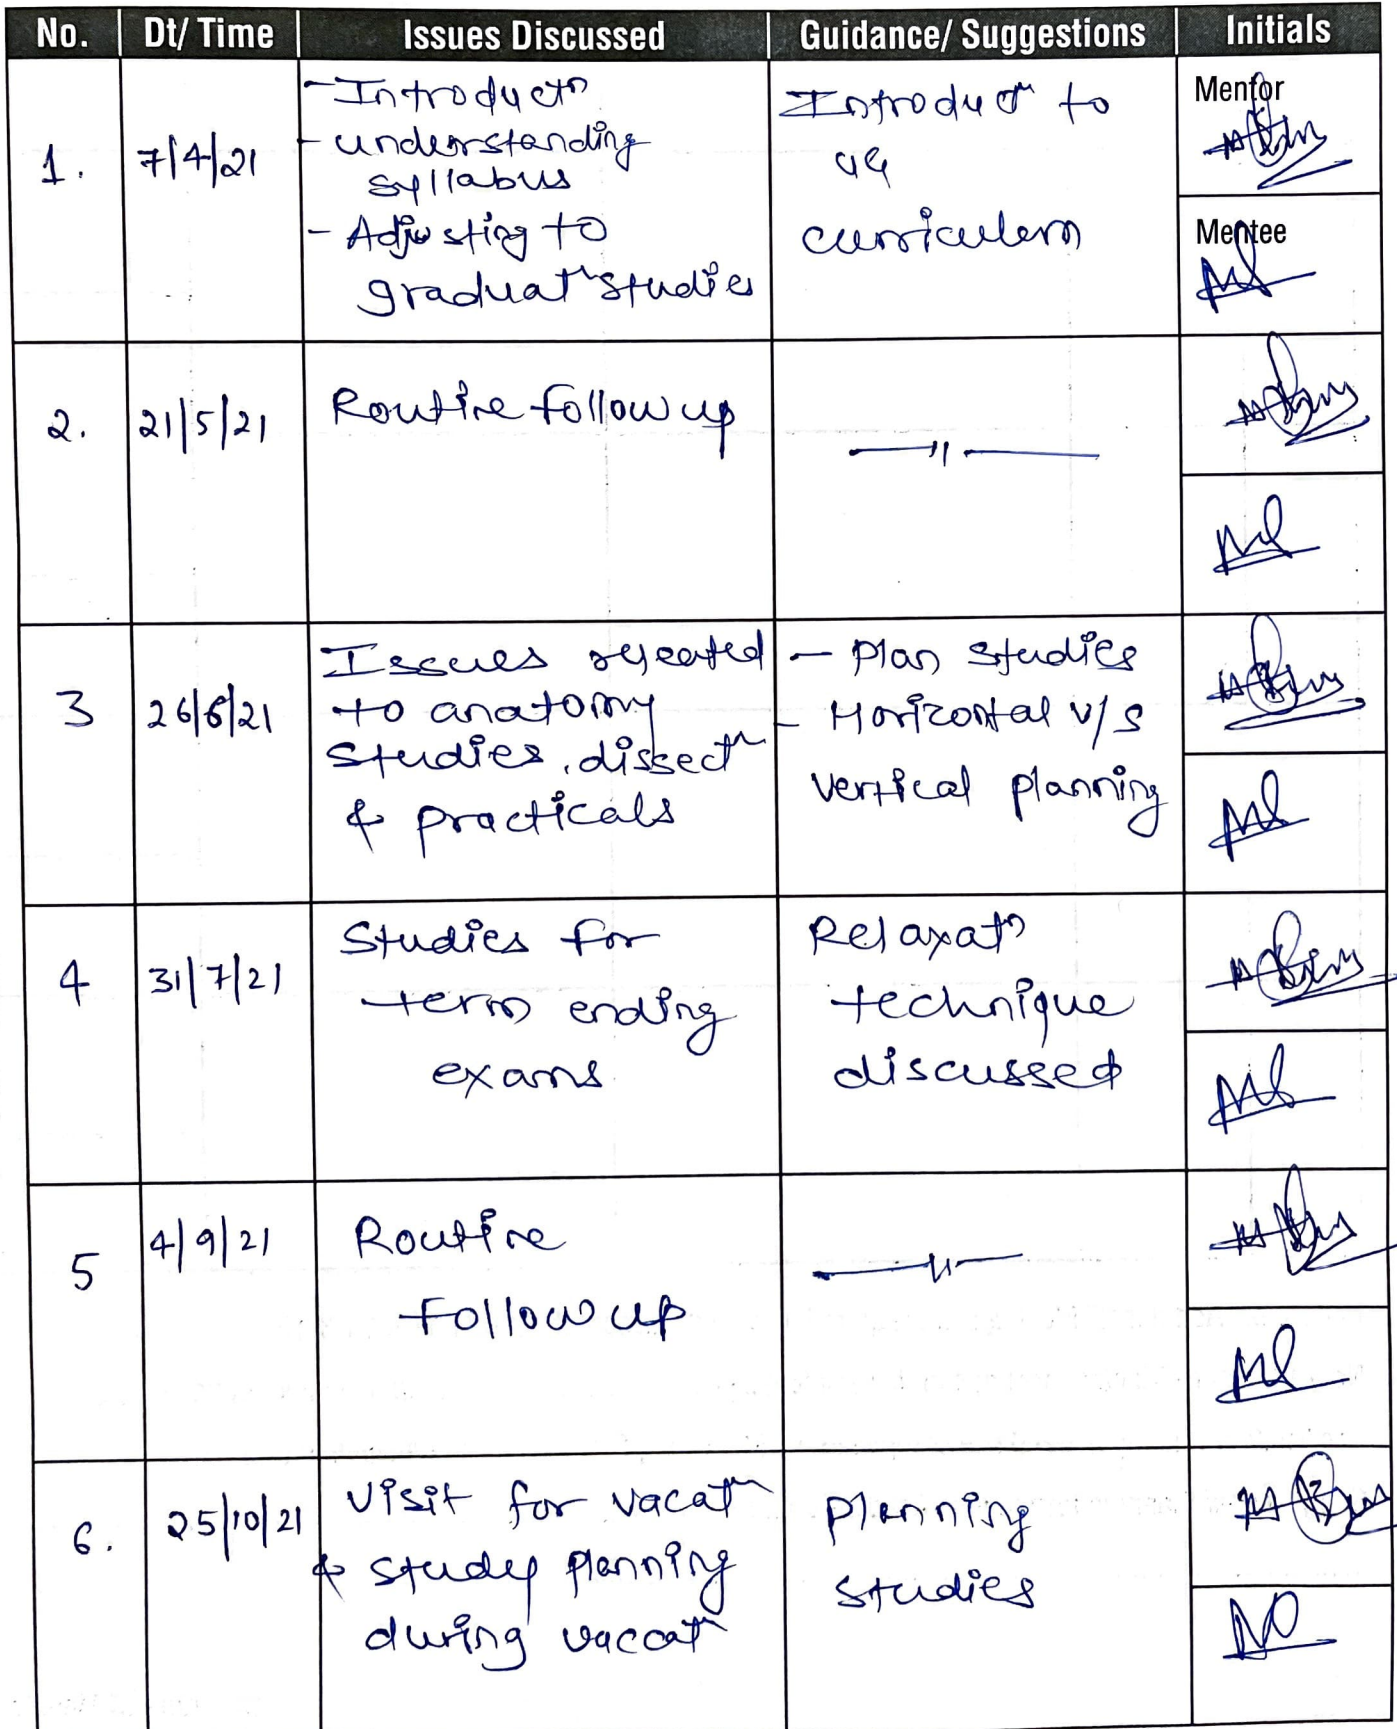 No. Dt/ Time Issues Discussed Guidance/ Suggestions Initials
1. 7/4/21
- Introductn
- understanding
syllabus
- Adjusting to
graduatn studies
Introductn to
UG
curriculem
Mentor
Mentee
2. 21/5/21
Routine follow up
—〃—
3 26/6/21
Issues releated
to anatomy
studies, dissectn
& practicals
- Plan studies
- Horizontal v/s
vertical planning
4 31/7/21
Studies for
term ending
exams
Relaxatn
technique
discussed
5 4/9/21
Routine
follow up
—〃—
6. 25/10/21
Visit for vacatn
& study planning
during vaccatn
Planning
studies